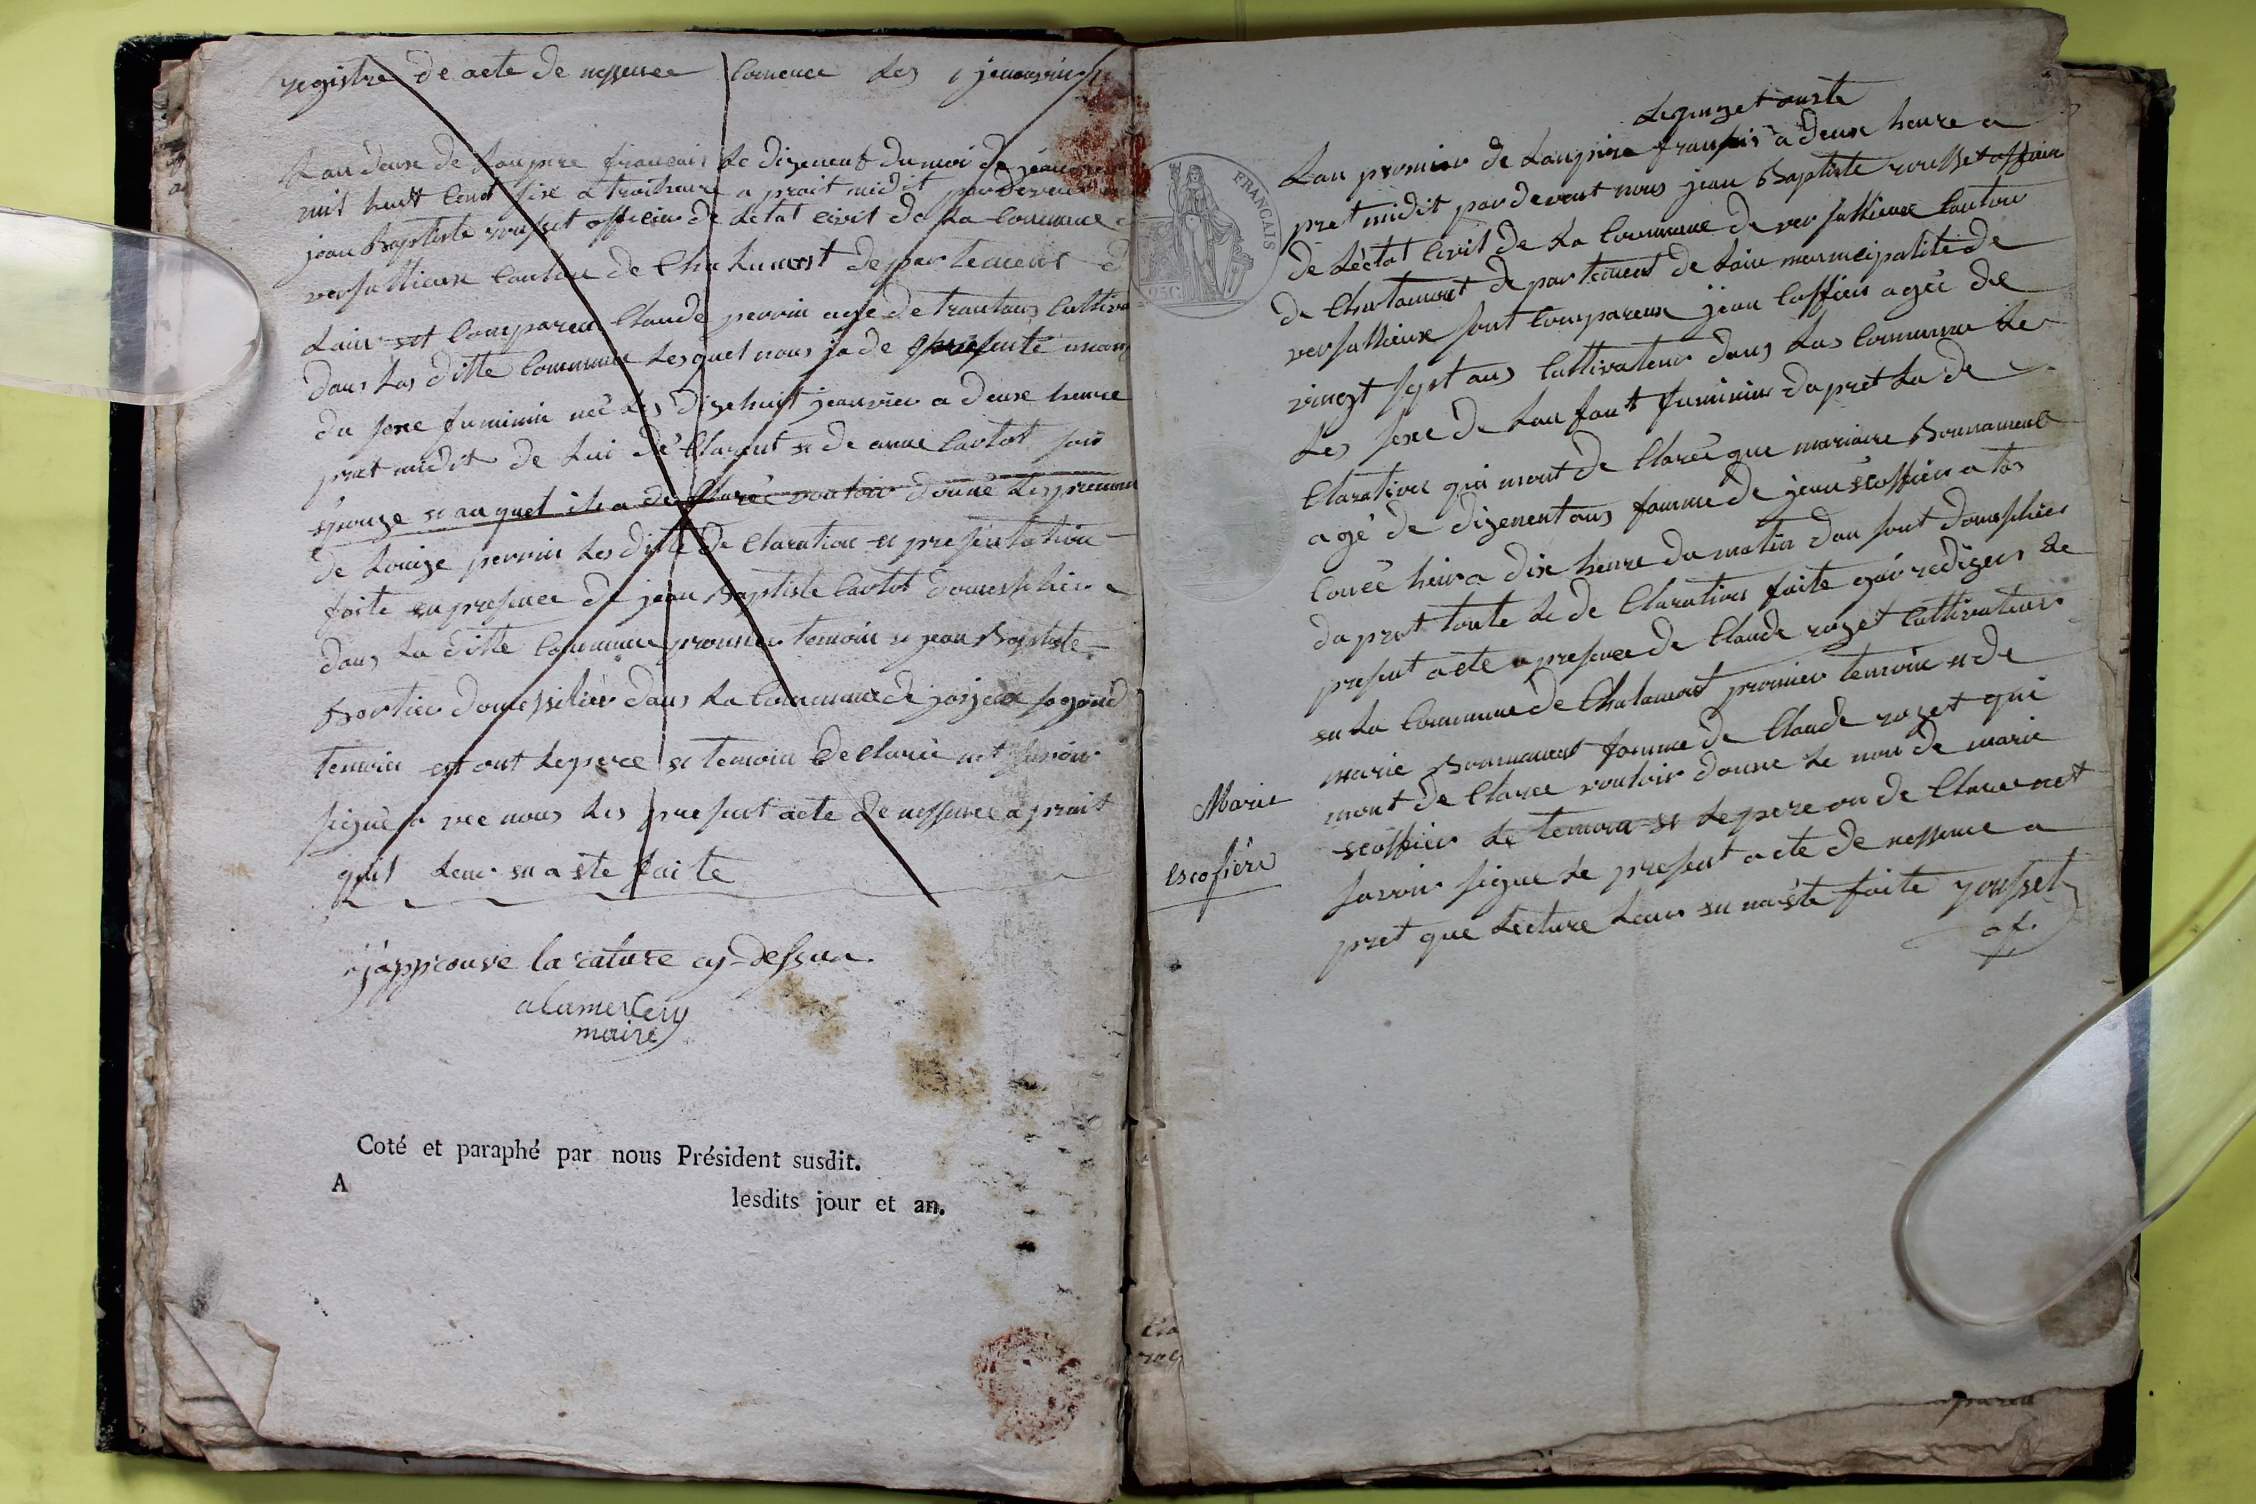 registre de acte de nessence comence les
Lan deuxe de Lanpire francais Le dizeneut du moi de
mil huit cent six a troitheure a prait midit pardevent
jean Baptiste rousset officier de Létat civit de La Commune
versallieux canton de Chalamont departement d
Lain est compareu Claude perrin age de trantans cultiva
dans Las ditte commune Lesquel nous ja de presenté unan
du sexe feminin neé Les dizehuit jeanvier a deux heure
prait midit de Lui dé Clarent et de anne Cartot son
épouze et au quel il a de Claréé voutoir donné Les prenom
de Louize perrin Les ditte de Claration et presentation
faite en presence de jean Baptiste Cartot domessilier
dans La ditte Commune promier temoin et jean Baptiste
Bortier domessilier dans La Commune de joyeux segond
temoin et ont Le pere et temoin de Clarée net savoir
signé a vec nous Les present acte de nessence a prait
quil Leur en a éte faite
j'approuve la rature cy-dessus.
alamercery
maire
Coté et paraphé par nous Président susdit.
A
lesdits jour et an.
FRANÇAIS
25C
Le onze t ouste
Lan promier de Lanpire fransais a deux heure a
pret midit par devent nous jean Baptiste rousset officier
de Léctat civit de La Commune de versallieux Canton
de Chalamont de partement de Lain meunicipalité de
versallieux sont compareux jean Coffier ageé de
vingt sept ans cultivateur dans Las Commune Le
Les sexe de Lan fant feminin da pret La de
Claration qui mont de Clareé que mariane Bonnament
agé de dizeneut ans famme de jean scoffier a Las
Coucé heir a dix heure du matin dan sont domesshier
da pret toute La de Claration faite gai rediger Le
present acte a presence de Claude rozet cultivateur
en La Commune de Chalamont promier temoin et de
marie Bonnament famme de Claude rozet qui
mont de Claree voutoir donne Le nom de marie
scoffier Le temoin et Le pere on de Claree net
savoir signe Le present acte de nessence a
pret que Lecture Leur en naéte faite rousset
of.
Marie
escofière